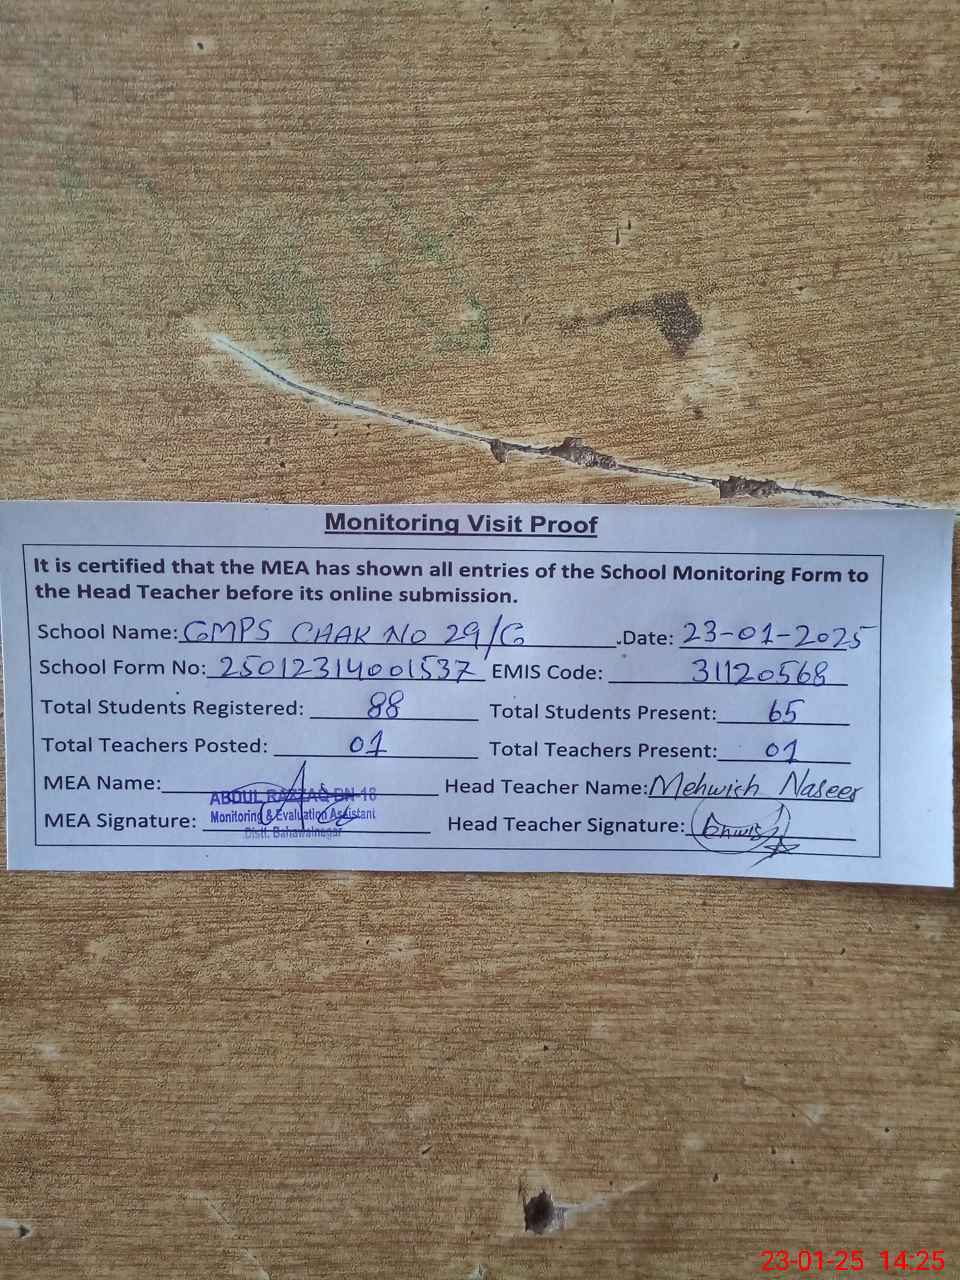 Monitoring Visit Proof
It is certified that the MEA has shown all entries of the School Monitoring Form to
the Head Teacher before its online submission.
School Name: GMPS CHAK NO 29/G .Date: 23-01-2025
School Form No: 25012314001537 EMIS Code: 31120568
Total Students Registered: 88 Total Students Present: 65
Total Teachers Posted: 01 Total Teachers Present: 01
MEA Name: Head Teacher Name: Mehwish Naseer
ABDUL RAZZAQ BN-18
Monitoring & Evaluation Assistant
MEA Signature: Head Teacher Signature:
Distt. Bahawalnagar
23-01-25 14:25